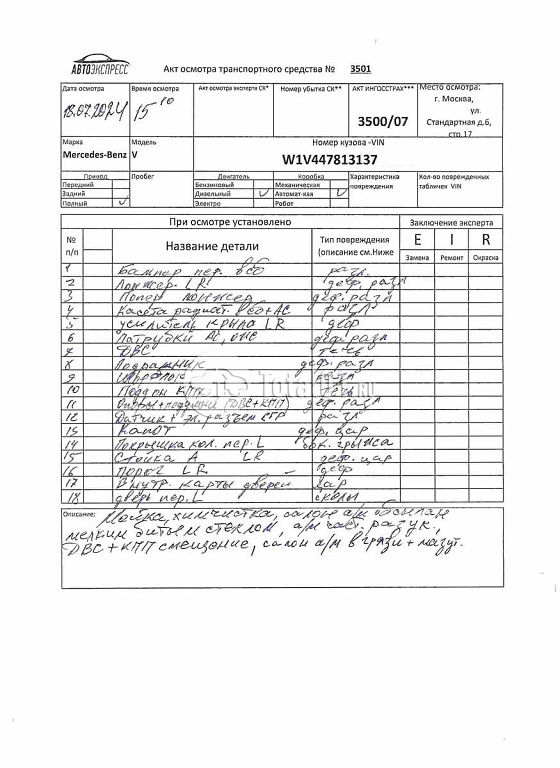 АВТОЭКСПРЕСС
Акт осмотра транспортного средства № 3501
Дата осмотра
Время осмотра
Акт осмотра эксперта СК*
Номер убытка СК**
АКТ ИНГОССТРАХ***
Место осмотра:
г. Москва,
ул.
Стандартная д.6,
стр.17
18.07.2024
15 10
3500/07
Марка
Модель
Номер кузова -VIN
Mercedes-Benz
V
W1V447813137
Привод
Пробег
Двигатель
Коробка
Характеристика повреждения
Кол-во поврежденных табличек VIN
Передний
Бензиновый
Механическая
Задний
Дизельный
Автомат-кая
Полный
Электро
Робот
При осмотре установлено
Заключение эксперта
№ п/п
Название детали
Тип повреждения
(описание см.Ниже
E I R
Замена Ремонт Окраска
1 Бампер пер. в сб разл.
2 Лонжер. LR деф. разл
3 Попер лонжер деф. разл
4 Касета радиат. в сб+АС разл
5 усилитель крыла LR деф
6 Патрубки АС, ОЖ деф. разл
7 ДВС течь
8 Подрамник деф. разл
9 разл
10 Поддон КПП течь
11 Опоры+подушки (ДВС+КПП) деф. разл
12 Датчик + эл. разъем разл
13 капот деф. цар
14 Покрышка кол. пер. L бок. грыжа
15 Стойка А LR деф. цар
16 порог LR деф
17 Внутр. карты дверей цар
18 дверь пер. L сколы
TotalLib.ru
Описание: Мойка, химчистка, салон а/м обсыпан
мелким битым стеклом, а/м част. разук.,
ДВС+КПП смещение, салон а/м в грязи + мазут.